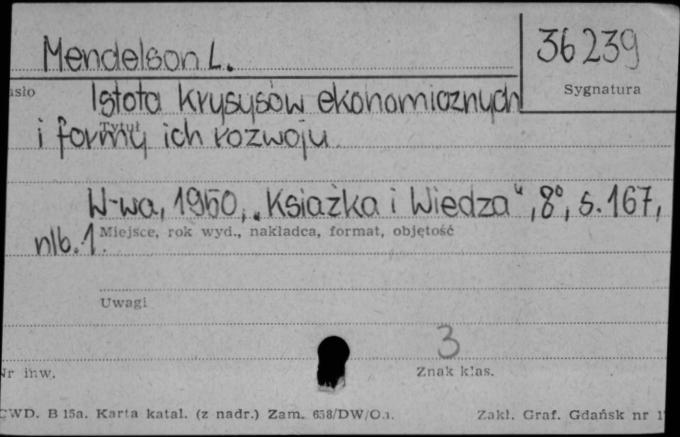 Mendelson L.
36239
Sygnatura
asło
Istota krysysów ekonomicznych
Tytuł
i formy ich rozwoju
W-wa, 1950, „Ksiażka i Wiedza", 8°, s. 167,
Miejsce, rok wyd., nakładca, format, objętość
nlb. 1.
Uwagi
3
Nr inw.
Znak klas.
CWD. B 15a. Karta katal. (z nadr.) Zam. 658/DW/O.
Zakł. Graf. Gdańsk nr 1